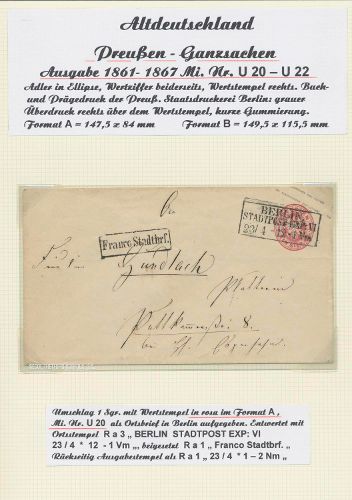 Altdeutschland
Preußen - Ganzsachen
Ausgabe 1861- 1867 Mi. Nr. U 20 – U 22
Adler in Ellipse, Wertziffer beiderseits, Wertstempel rechts. Buch-
und Prägedruck der Preuß. Staatsdruckerei Berlin: grauer
Überdruck rechts über dem Wertstempel, kurze Gummierung.
Format A = 147,5 x 84 mm Format B = 149,5 x 115,5 mm
An
BERLIN
STADTPOST EXP. VI
23/4 12-1 Nm
Franco Stadtbrf.
Gundlach
8.
Umschlag 1 Sgr. mit Wertstempel in rosa im Format A ,
Mi. Nr. U 20 als Ortsbrief in Berlin aufgegeben. Entwertet mit
Ortsstempel R a 3 „ BERLIN STADTPOST EXP: VI
23 / 4 * 12 - 1 Vm „, beigesetzt R a 1 „ Franco Stadtbrf. „
Rückseitig Ausgabestempel als R a 1 „ 23 / 4 * 1 – 2 Nm „